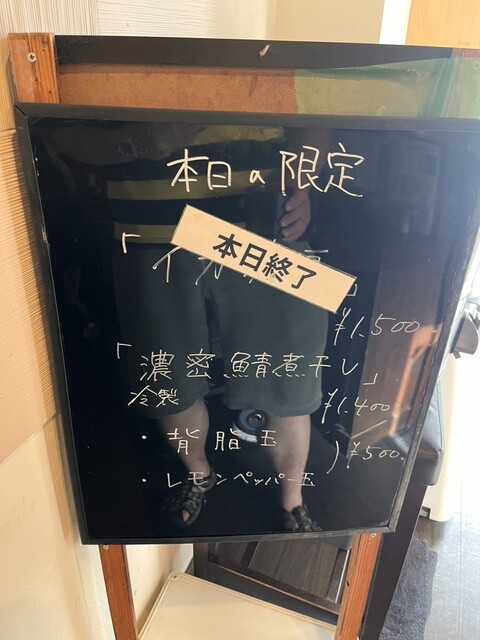 本日の限定
「イカ
本日終了
」
¥1.500
「濃密鯖煮干し」
冷製
¥1.400
・背脂玉
) ¥500.
・レモンペッパー玉